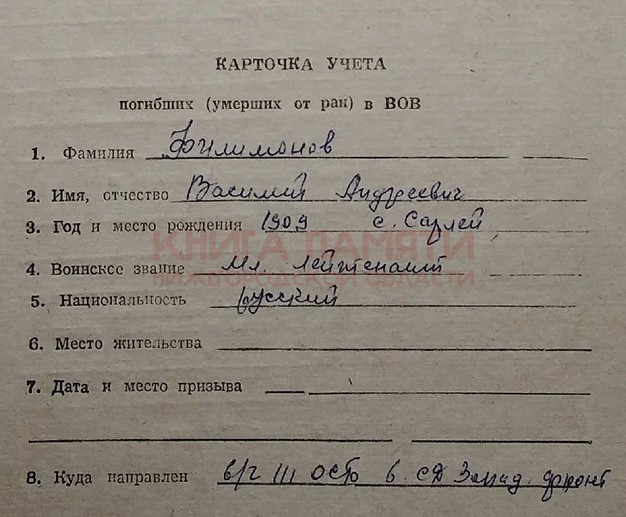 КАРТОЧКА УЧЕТА
погибших (умерших от ран) в ВОВ
1. Фамилия Филимонов
2. Имя, отчество Василий Андреевич
3. Год и место рождения 1909 с. Сарлей
КНИГА ПАМЯТИ
НИЖЕГОРОДСКОЙ ОБЛАСТИ
4. Воинское звание Мл. лейтенант
5. Национальность русский
6. Место жительства
7. Дата и место призыва
8. Куда направлен в/ч III 6. СД Запад. фронт